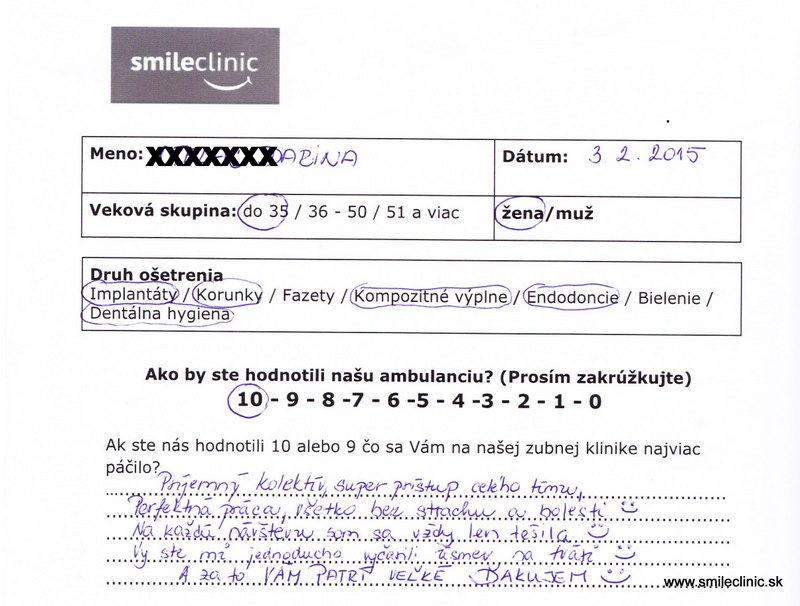 smileclinic
Meno: XXXXXXX DARINA Dátum: 3.2.2015
Veková skupina: do 35 / 36 - 50 / 51 a viac žena/muž
Druh ošetrenia
Implantáty / Korunky / Fazety / Kompozitné výplne / Endodoncie / Bielenie /
Dentálna hygiena
Ako by ste hodnotili našu ambulanciu? (Prosím zakrúžkujte)
10 - 9 - 8 -7 - 6 -5 - 4 -3 - 2 - 1 - 0
Ak ste nás hodnotili 10 alebo 9 čo sa Vám na našej zubnej klinike najviac
páčilo?
Príjemný kolektív, super prístup celého tímu,
Perfektná práca, všetko bez strachu a bolesti
Na každú návštevu som sa vždy len tešila.
Vy ste mi jednoducho vyčarili úsmev na tvári
A za to VÁM PATRÍ VEĽKÉ ĎAKUJEM
www.smileclinic.sk